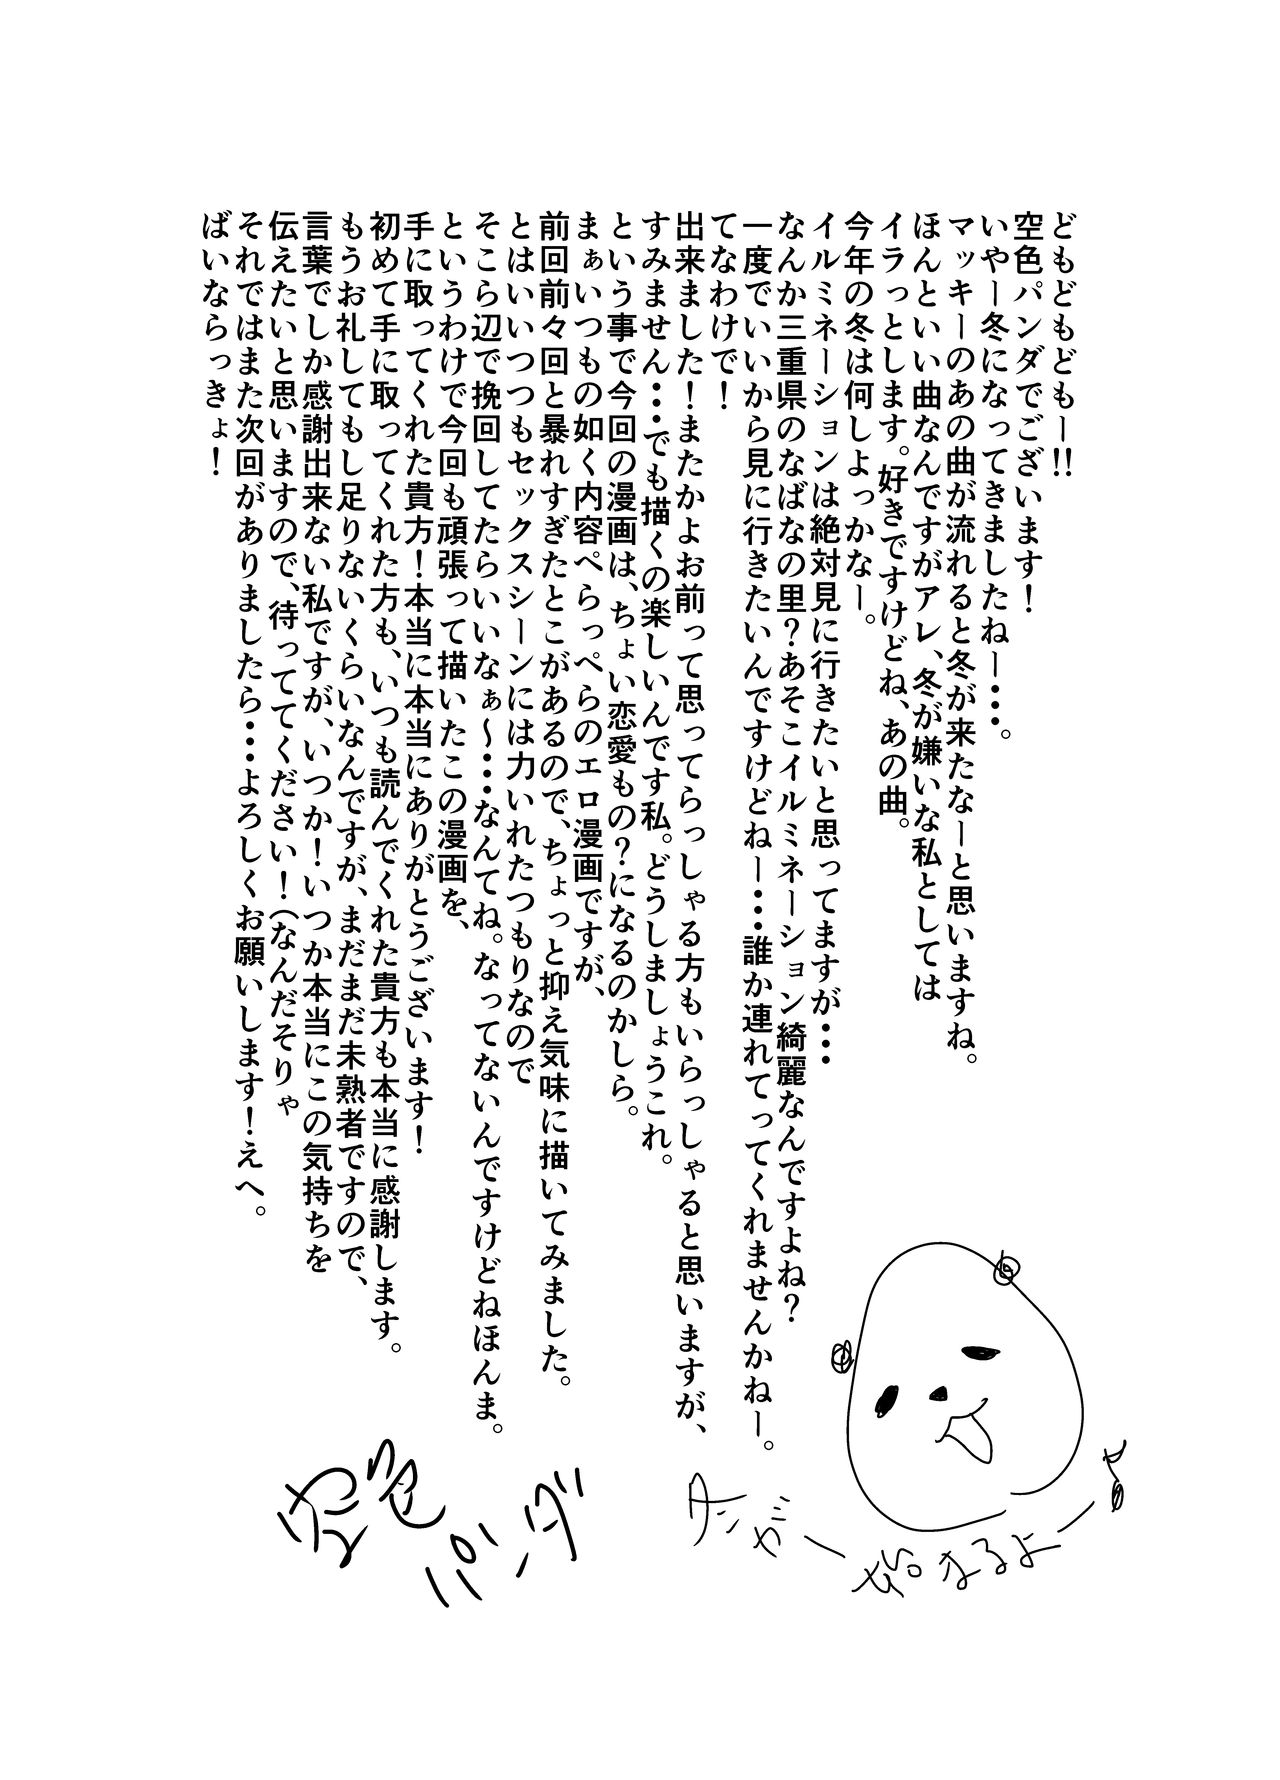 どもどもどもー!!
空色パンダでございます！
いやー冬になってきましたねー・・・。
マッキーのあの曲が流れると冬が来たなーと思いますね。
ほんといい曲なんですがアレ、冬が嫌いな私としては
イラっとします。好きですけどね、あの曲。
今年の冬は何しよっかなー。
イルミネーションは絶対見に行きたいと思ってますが・・・
なんか三重県のなばなの里？あそこイルミネーション綺麗なんですよね？
一度でいいから見に行きたいんですけどねー・・・誰か連れてってくれませんかねー。
てなわけで！
出来ました！またかよお前って思ってらっしゃる方もいらっしゃると思いますが、
すみません・・・でも描くの楽しいんです私。どうしましょうこれ。
という事で今回の漫画は、ちょい恋愛もの？になるのかしら。
まぁいつもの如く内容ぺらっぺらのエロ漫画ですが、
前回前々回と暴れすぎたとこがあるので、ちょっと抑え気味に描いてみました。
とはいいつつもセックスシーンには力いれたつもりなので
そこら辺で挽回してたらいいなぁ〜・・・なんてね。なってないんですけどねほんま。
というわけで今回も頑張って描いたこの漫画を、
手に取ってくれた貴方！本当に本当にありがとうございます！
初めて手に取ってくれた方も、いつも読んでくれた貴方も本当に感謝します。
もうお礼してもし足りないくらいなんですが、まだまだ未熟者ですので、
言葉でしか感謝出来ない私ですが、いつか！いつか本当にこの気持ちを
伝えたいと思いますので、待っててください！（なんだそりゃ
それではまた次回がありましたら・・・よろしくお願いします！えへ。
ばいならっきょ！
空色
パンダ